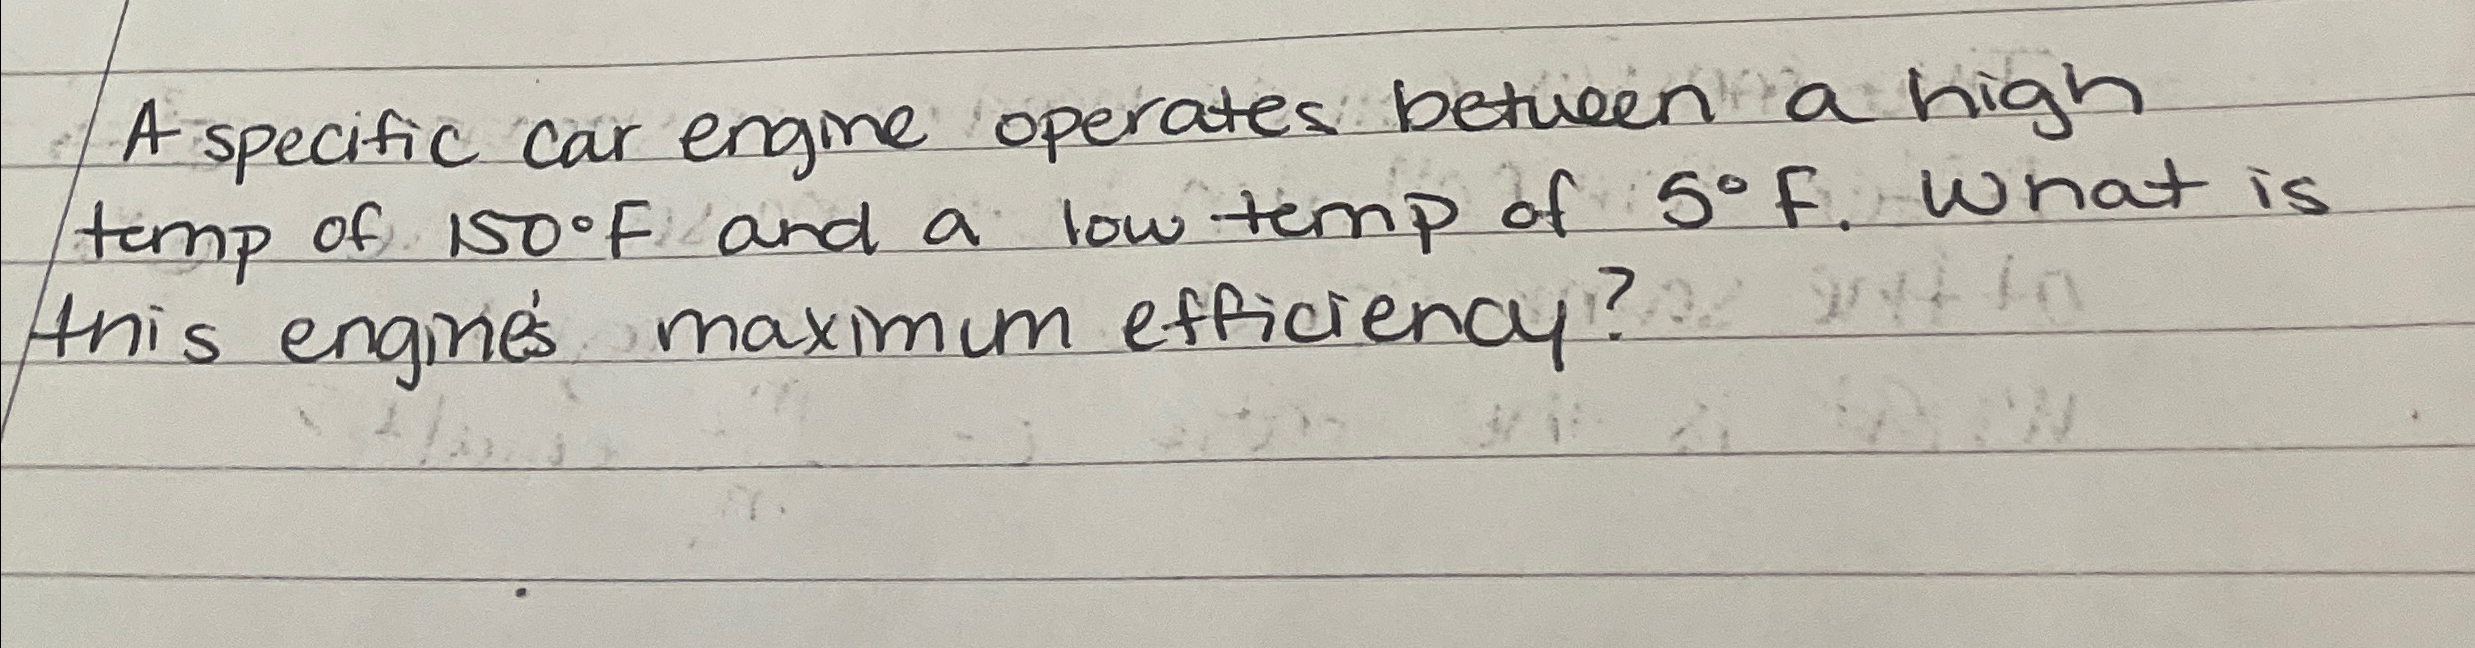 A specific car engine operates between a high
temp of 150°F and a low temp of 5°F. What is
this engine's maximum efficiency?